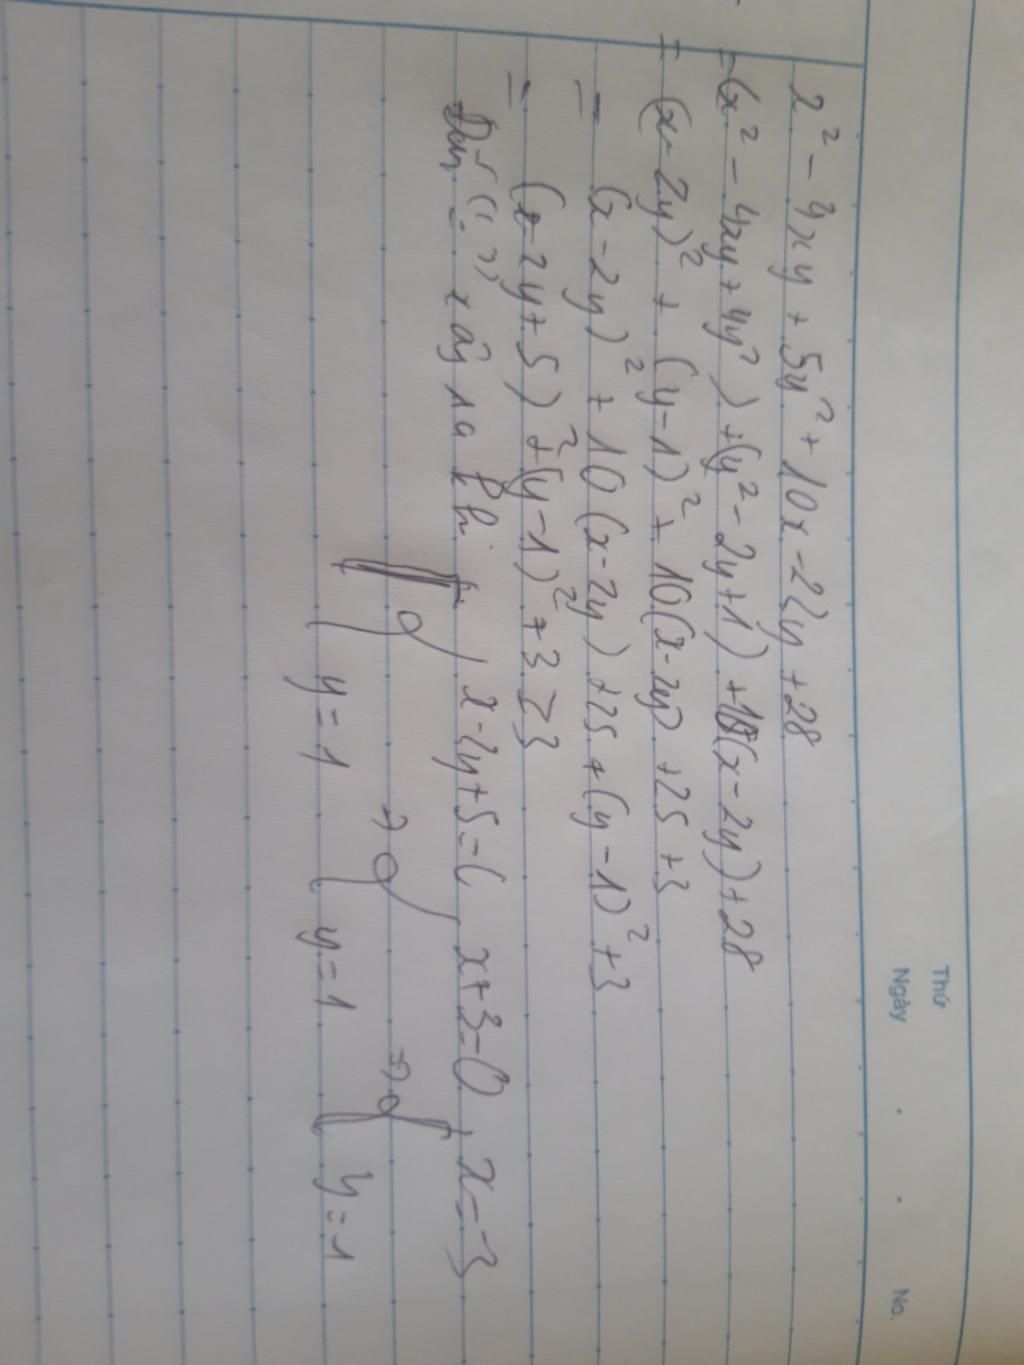 Thứ
Ngày . . No.
x² - 4xy + 5y² + 10x - 22y + 28
= (x² - 4xy + 4y²) + (y² - 2y + 1) + 10(x - 2y) + 28
= (x - 2y)² + (y - 1)² + 10(x - 2y) + 25 + 3
= (x - 2y)² + 10(x - 2y) + 25 + (y - 1)² + 3
= (x - 2y + 5)² + (y - 1)² + 3 ≥ 3
Dấu "=" xảy ra khi { x - 2y + 5 = 0 => { x + 3 = 0 => { x = -3
y = 1 y = 1 y = 1